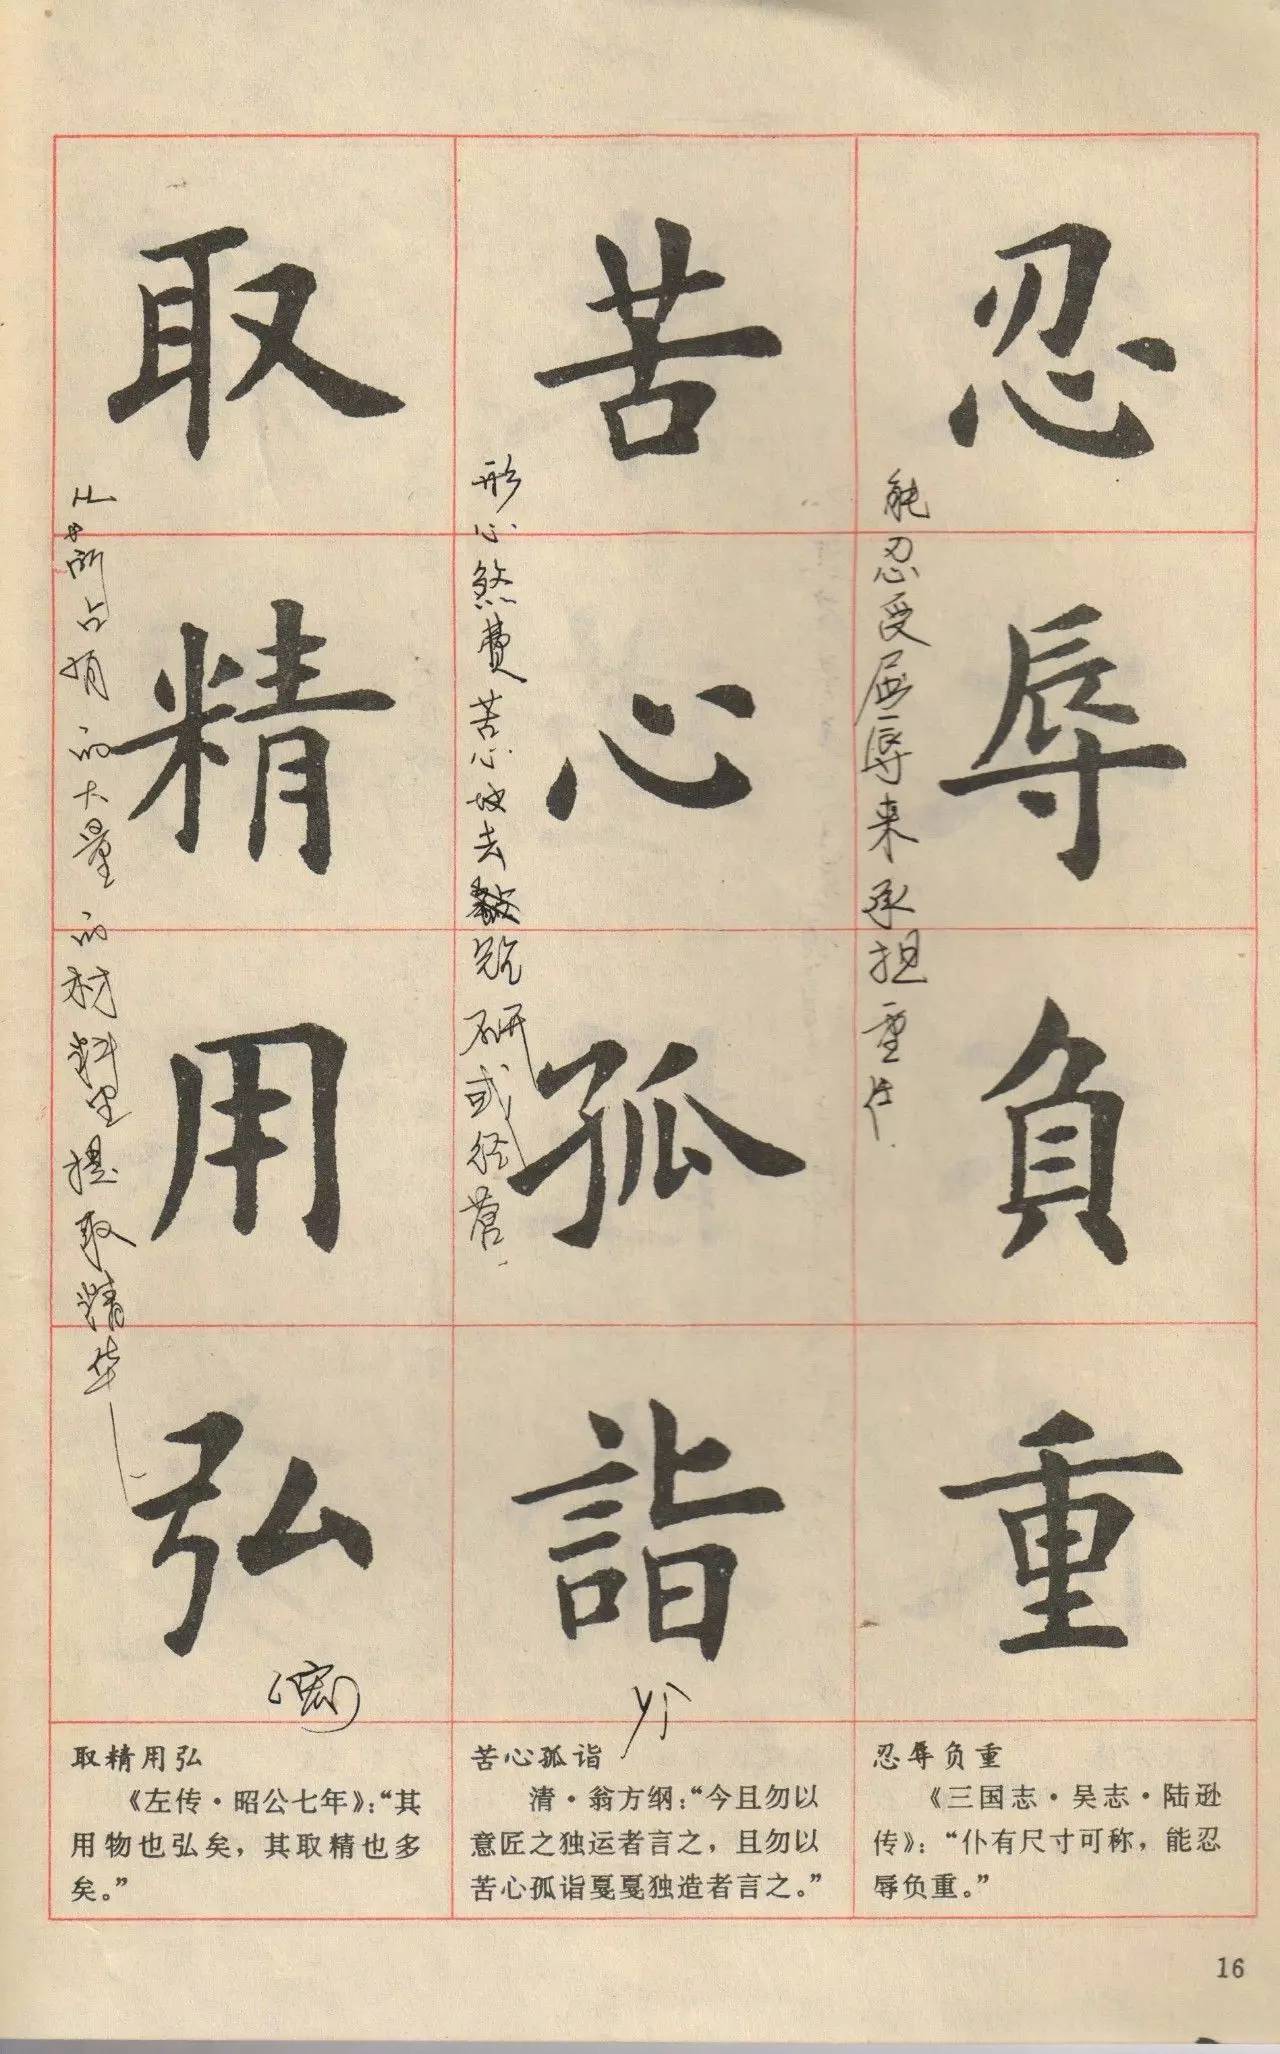 忍辱負重
能忍受屈辱来承担重任.
苦心孤詣
形心煞費苦心地去鑽研或径营.
取精用弘
从所占有的大量的材料里提取精华
(宏)
忍辱负重
《三国志·吴志·陆逊
传》：“仆有尺寸可称，能忍
辱负重。”
苦心孤诣
清·翁方纲：“今且勿以
意匠之独运者言之，且勿以
苦心孤诣戛戛独造者言之。”
取精用弘
《左传·昭公七年》：“其
用物也弘矣，其取精也多
矣。”
16